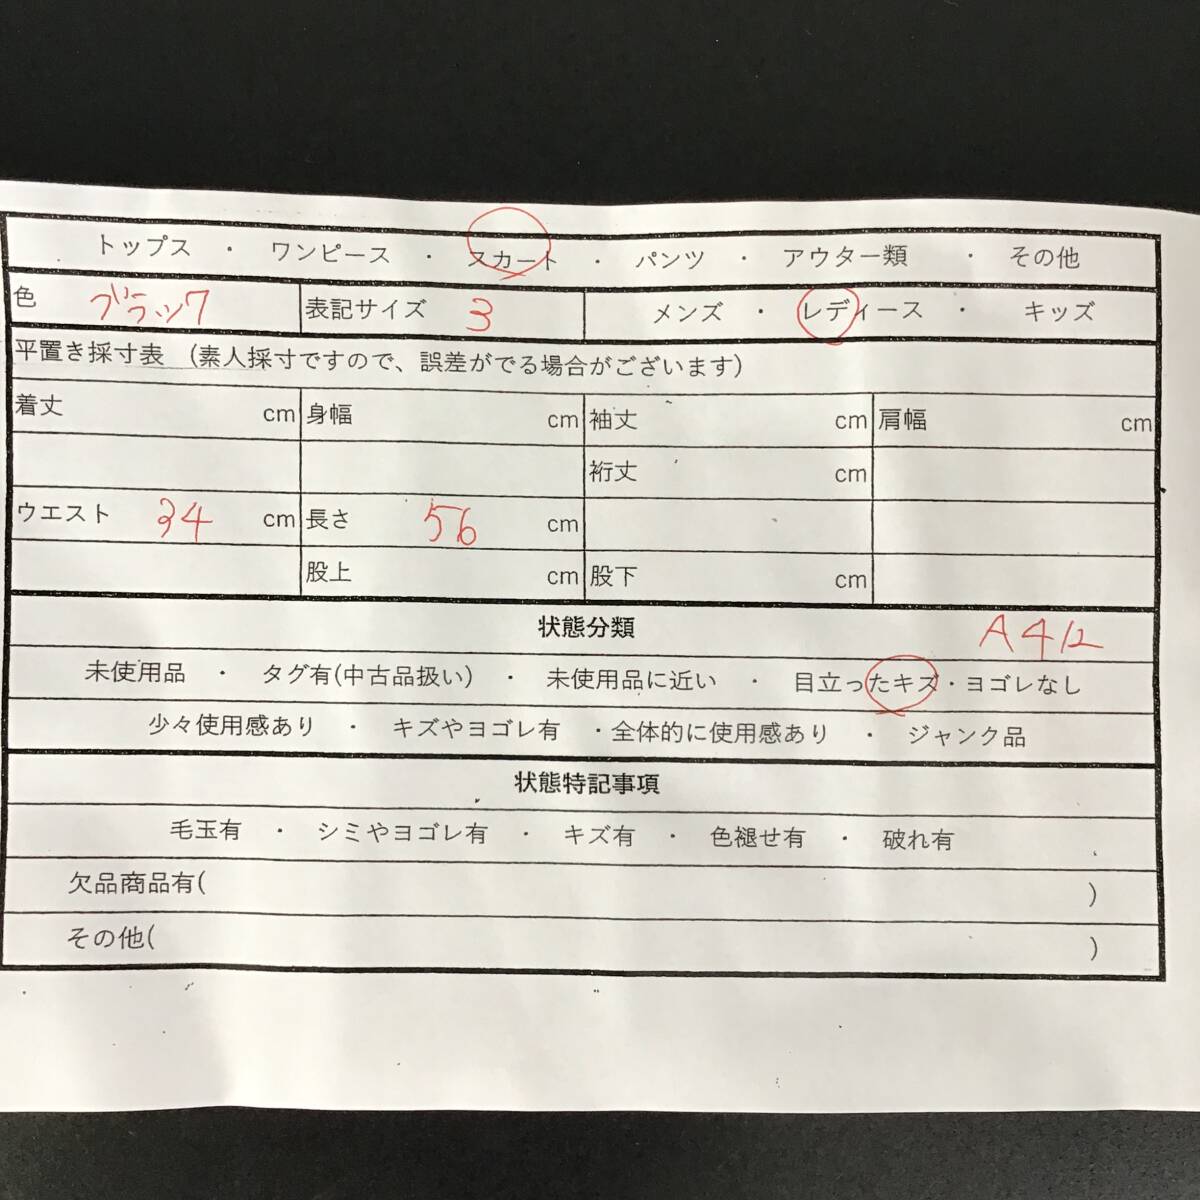 トップス ・ ワンピース ・ スカート ・ パンツ ・ アウター類 ・ その他
色 ブラック 表記サイズ 3 メンズ ・ レディース ・ キッズ
平置き採寸表 (素人採寸ですので、誤差がでる場合がございます)
着丈 cm 身幅 cm 袖丈 cm 肩幅 cm
裄丈 cm
ウエスト 34 cm 長さ 56 cm
股上 cm 股下 cm
状態分類 A412
未使用品 ・ タグ有(中古品扱い) ・ 未使用品に近い ・ 目立ったキズ・ヨゴレなし
少々使用感あり ・ キズやヨゴレ有 ・全体的に使用感あり ・ ジャンク品
状態特記事項
毛玉有 ・ シミやヨゴレ有 ・ キズ有 ・ 色褪せ有 ・ 破れ有
欠品商品有( )
その他( )